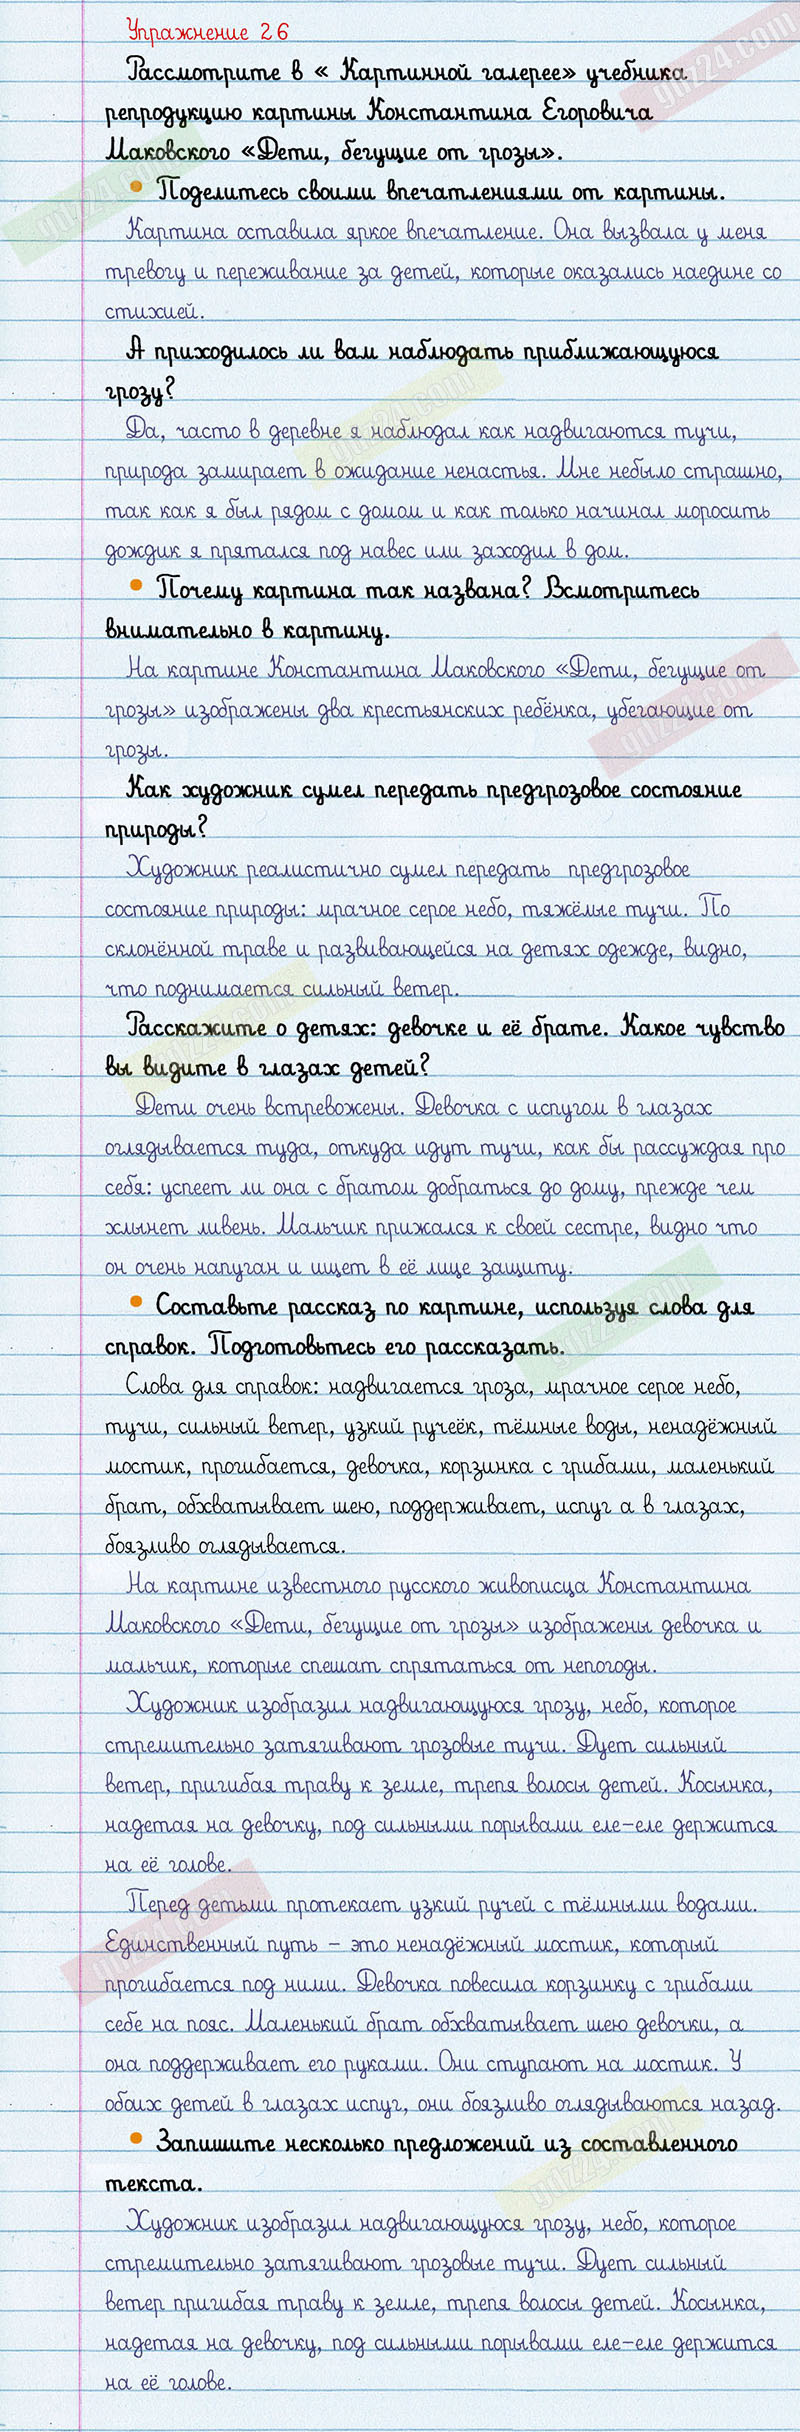 Упражнение 26
Рассмотрите в « Картинной галерее» учебника
репродукцию картины Константина Егоровича
Маковского «Дети, бегущие от грозы».
• Поделитесь своими впечатлениями от картины.
Картина оставила яркое впечатление. Она вызвала у меня
тревогу и переживание за детей, которые оказались наедине со
стихией.
А приходилось ли вам наблюдать приближающуюся
грозу?
Да, часто в деревне я наблюдал как надвигаются тучи,
природа замирает в ожидание ненастья. Мне небыло страшно,
так как я был рядом с домом и как только начинал моросить
дождик я прятался под навес или заходил в дом.
• Почему картина так названа? Всмотритесь
внимательно в картину.
На картине Константина Маковского «Дети, бегущие от
грозы» изображены два крестьянских ребёнка, убегающие от
грозы.
Как художник сумел передать предгрозовое состояние
природы?
Художник реалистично сумел передать предгрозовое
состояние природы: мрачное серое небо, тяжёлые тучи. По
склонённой траве и развивающейся на детях одежде, видно,
что поднимается сильный ветер.
Расскажите о детях: девочке и её брате. Какое чувство
вы видите в глазах детей?
Дети очень встревожены. Девочка с испугом в глазах
оглядывается туда, откуда идут тучи, как бы рассуждая про
себя: успеет ли она с братом добраться до дому, прежде чем
хлынет ливень. Мальчик прижался к своей сестре, видно что
он очень напуган и ищет в её лице защиту.
• Составьте рассказ по картине, используя слова для
справок. Подготовьтесь его рассказать.
Слова для справок: надвигается гроза, мрачное серое небо,
тучи, сильный ветер, узкий ручеёк, тёмные воды, ненадёжный
мостик, прогибается, девочка, корзинка с грибами, маленький
брат, обхватывает шею, поддерживает, испуг а в глазах,
боязливо оглядывается.
На картине известного русского живописца Константина
Маковского «Дети, бегущие от грозы» изображены девочка и
мальчик, которые спешат спрятаться от непогоды.
Художник изобразил надвигающуюся грозу, небо, которое
стремительно затягивают грозовые тучи. Дует сильный
ветер, пригибая траву к земле, трепя волосы детей. Косынка,
надетая на девочку, под сильными порывами еле-еле держится
на её голове.
Перед детьми протекает узкий ручей с тёмными водами.
Единственный путь – это ненадёжный мостик, который
прогибается под ними. Девочка повесила корзинку с грибами
себе на пояс. Маленький брат обхватывает шею девочки, а
она поддерживает его руками. Они ступают на мостик. У
обоих детей в глазах испуг, они боязливо оглядываются назад.
• Запишите несколько предложений из составленного
текста.
Художник изобразил надвигающуюся грозу, небо, которое
стремительно затягивают грозовые тучи. Дует сильный
ветер пригибая траву к земле, трепя волосы детей. Косынка,
надетая на девочку, под сильными порывами еле-еле держится
на её голове.
gdz24.com
gdz24.com
gdz24.com
gdz24.com
gdz24.com
gdz24.com
gdz24.com
gdz24.com